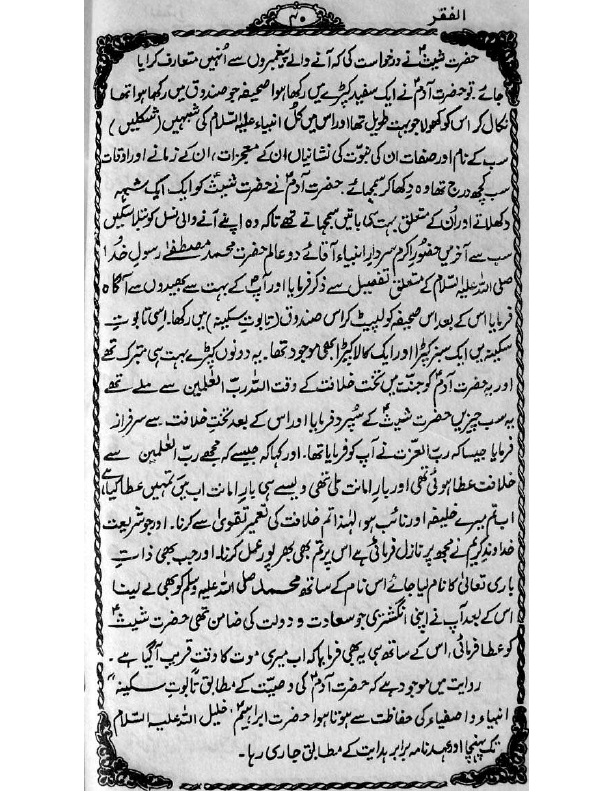 الفقر
۴۰
حضرت شیثؑ نے درخواست کی کہ آنے والے پیغمبروں سے اُنہیں متعارف کرایا
جائے۔ تو حضرت آدمؑ نے ایک سفید کپڑے میں رکھا ہوا صحیفہ جو صندوق میں رکھا ہوا تھا
نکال کر اس کو کھولا جو بہت طویل تھا اور اس میں کُل انبیاء علیہ السّلام کی شبیہیں (شکلیں)
سب کے نام اور صفات ان کی نبوّت کی نشانیاں اُن کے معجزات، ان کے زمانے اور اوقات
سب کچھ درج تھا وہ دکھا کر سمجھائے۔ حضرت آدمؑ نے حضرت شیثؑ کو ایک ایک شبیہہ
دکھلائے اور اُن کے متعلق بہت سی باتیں سمجھاتے تھے تاکہ وہ اپنے آنے والی نسل کو بتلا سکیں
سب سے آخر میں حضورِ اکرم سردارِ انبیاء آقائے دو عالم حضرت محمد مصطفےٰ رسولِ خُدا
صلی اللہ علیہ السّلام کے متعلق تفصیل سے ذکر فرمایا اور آپؐ کے بہت سے بھیدوں سے آگاہ
فرمایا اس کے بعد اس صحیفہ کو لپیٹ کر اس صندوق (تابوتِ سکینہ) میں رکھا۔ اِسی تابوتِ
سکینہ میں ایک سبز کپڑا اور ایک کالا کپڑا بھی موجود تھا۔ یہ دونوں کپڑے بہت ہی متبرک تھے
اور یہ حضرت آدمؑ کو جنّت میں تخت خلافت کے وقت اللہ ربّ العٰلمین سے ملے تھے
یہ سب چیزیں حضرت شیثؑ کے سُپرد فرمایا اور اس کے بعد تختِ خلافت سے سرفراز
فرمایا جیسا کہ ربّ العزّت نے آپ کو فرمایا تھا۔ اور کہا کہ جیسے کہ مجھے ربّ العٰلمین سے
خلافت عطا ہوئی تھی اور بارِ امانت ملی تھی ویسے ہی بارِ امانت اب میں تمہیں عطا کیا ہے
اب تم میرے خلیفہ اور نائب ہو، لہٰذا تم خلافت کی تعمیر تقویٰ سے کرنا۔ اور جو شریعت
خداوندِ کریم نے مجھ پر نازل فرمائی ہے اس پر تم بھی بھرپور عمل کرنا۔ اور جب بھی ذاتِ
باری تعالیٰ کا نام لیا جائے اس نام کے ساتھ محمد صلی اللہ علیہ وسلم کو بھی لے لینا
اس کے بعد آپ نے اپنی انگشتری جو سعادت و دولت کی ضامن تھی حضرت شیثؑ
کو عطا فرمائی، اس کے ساتھ ہی یہ بھی فرمایا کہ اب میری موت کا وقت قریب آگیا ہے۔
روایت میں موجود ہے کہ حضرت آدمؑ کی وصیّت کے مطابق "تابوتِ سکینہ"
انبیاء و اصفیاء کی حفاظت سے ہوتا ہوا حضرت ابراہیمؑ خلیل اللہ علیہ السّلام
تک پہنچا اور عہد نامہ برابر ہدایت کے مطابق جاری رہا۔